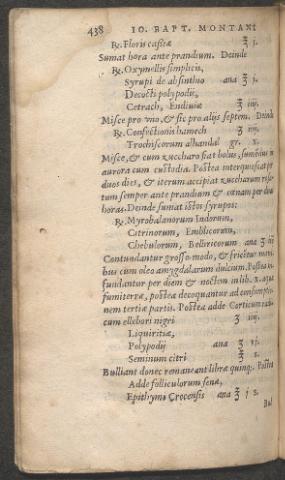 438 IO. BAPT. MONTANI
℞. Floris cassiæ ℥ j.
Sumat hora ante prandium. Deinde
℞. Oxymellis simplicis,
Syrupi de absinthio ana ℥ j.
Decocti polypodij,
Cetrach, Endiuiæ ℥ iiij.
Misce pro vno, & sic pro alijs septem. Deinde
℞. Confectionis hamech ʒ iiij.
Trochiscorum alhandal gr. x.
Misce, & cum zuccharo fiat bolus, sumatur in
aurora cum custodia. Postea interquiescat per
duos dies, & iterum accipiat zuccharum rosa-
tum semper ante prandium & cœnam per duas
horas. Deinde sumat istos syrupos:
℞. Myrobalanorum Indorum,
Citrinorum, Emblicorum,
Chebulorum, Belliricorum ana ʒ iij
Contundantur grosso modo, & fricetur mani-
bus cum oleo amygdalarum dulcium. Postea in-
fundantur per diem & noctem in lib. x. aquæ
fumiterræ, postea decoquantur ad
nem tertiæ partis. Postea adde Corticum radi-
cum ellebori nigri ʒ iiij.
Liquiritiæ,
Polypodij ana ʒ vj.
Seminum citri ℥ s.
Bulliant donec remaneant libræ quinq;. Postea
Adde folliculorum senæ,
Epithymi Crocensis ana ℥ j s.
Bul